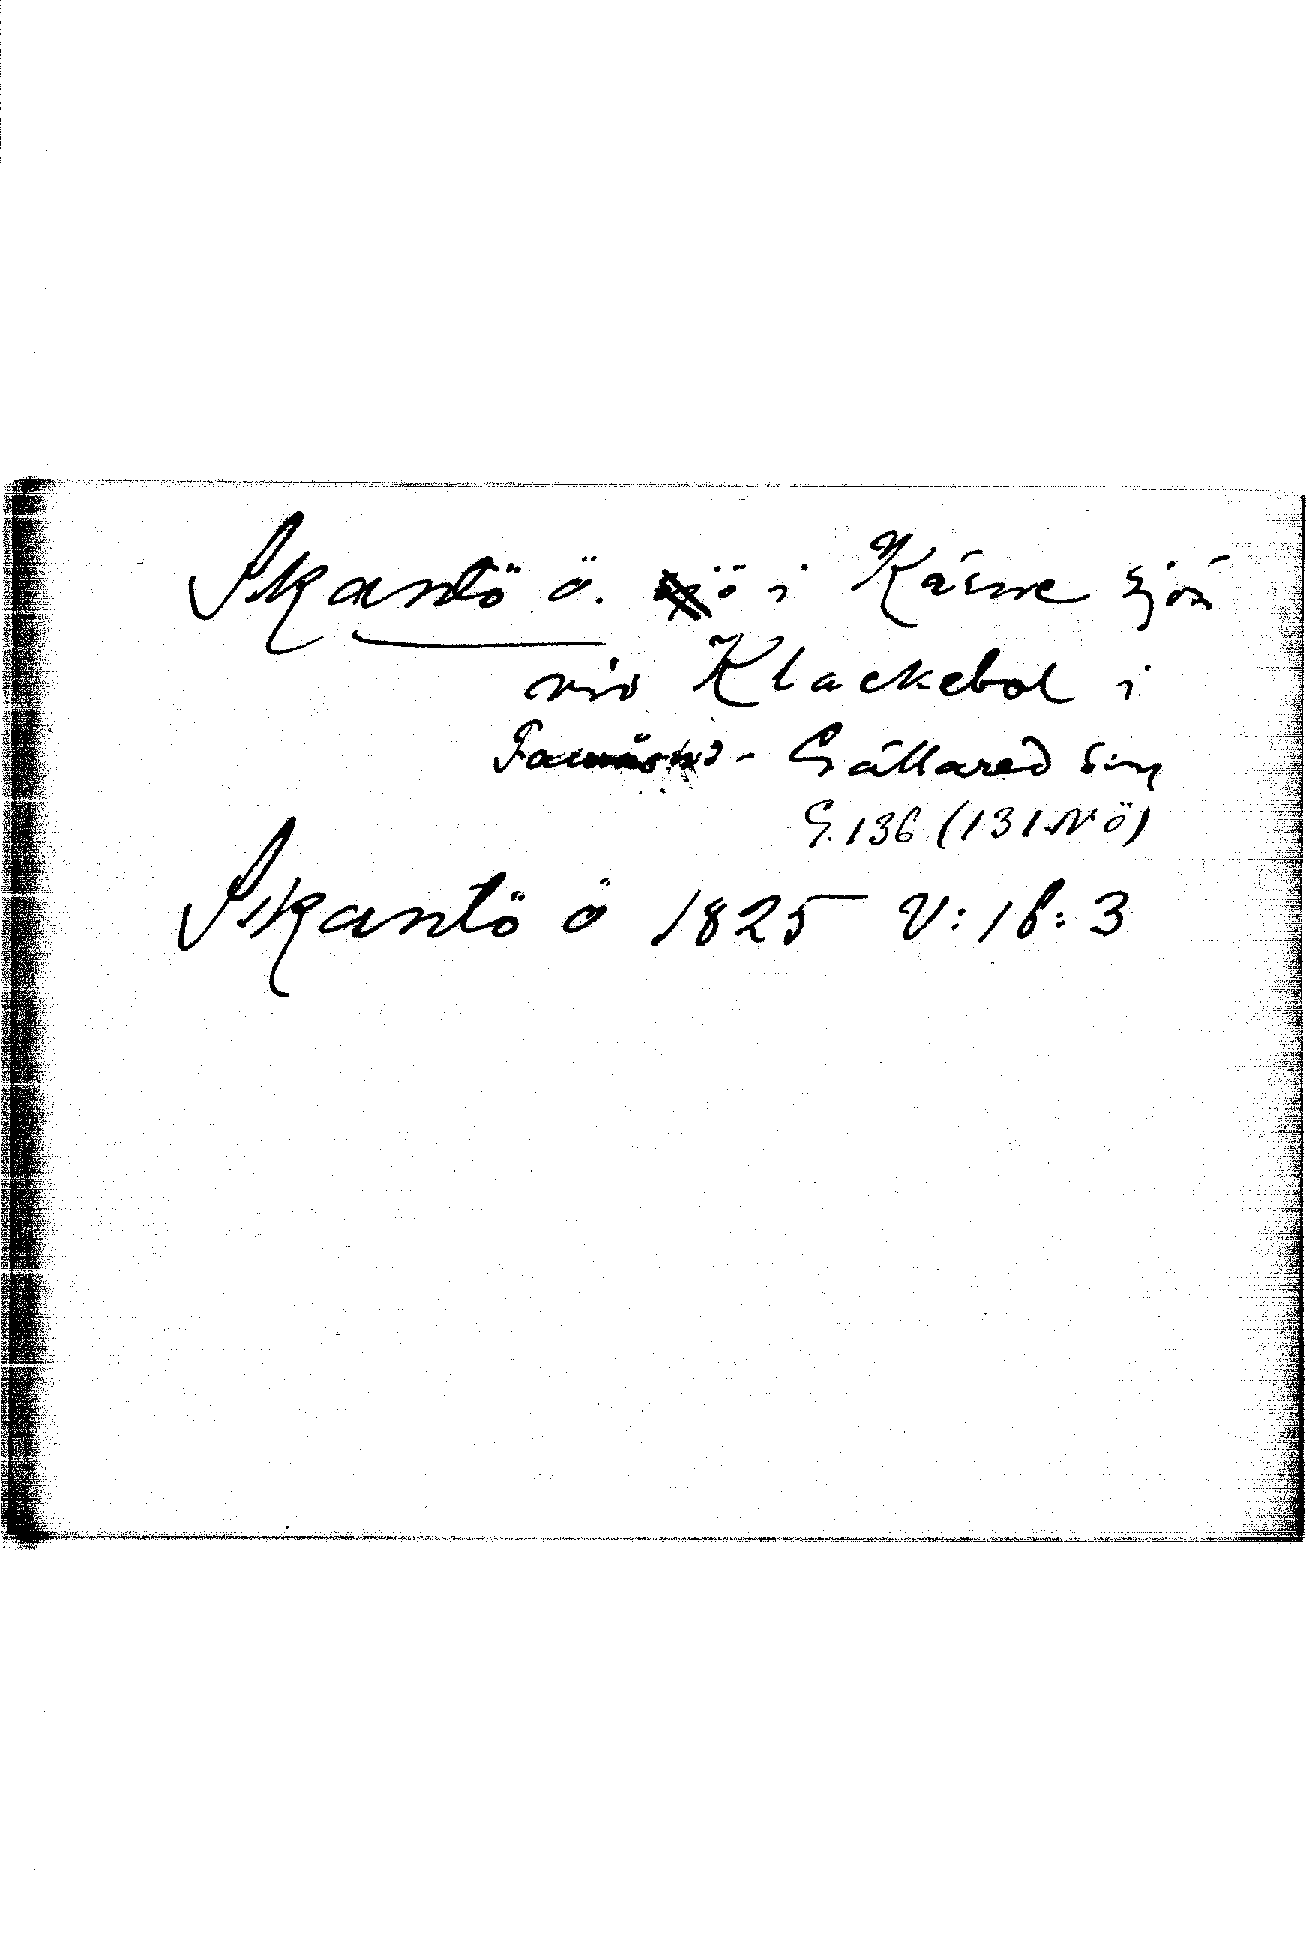 Skantö ö. ö i Käsne sjön
vid Klackebol i
Gällared sn
G. 136 (131 NÖ)
Skantö ö 1825 V: 1b: 3